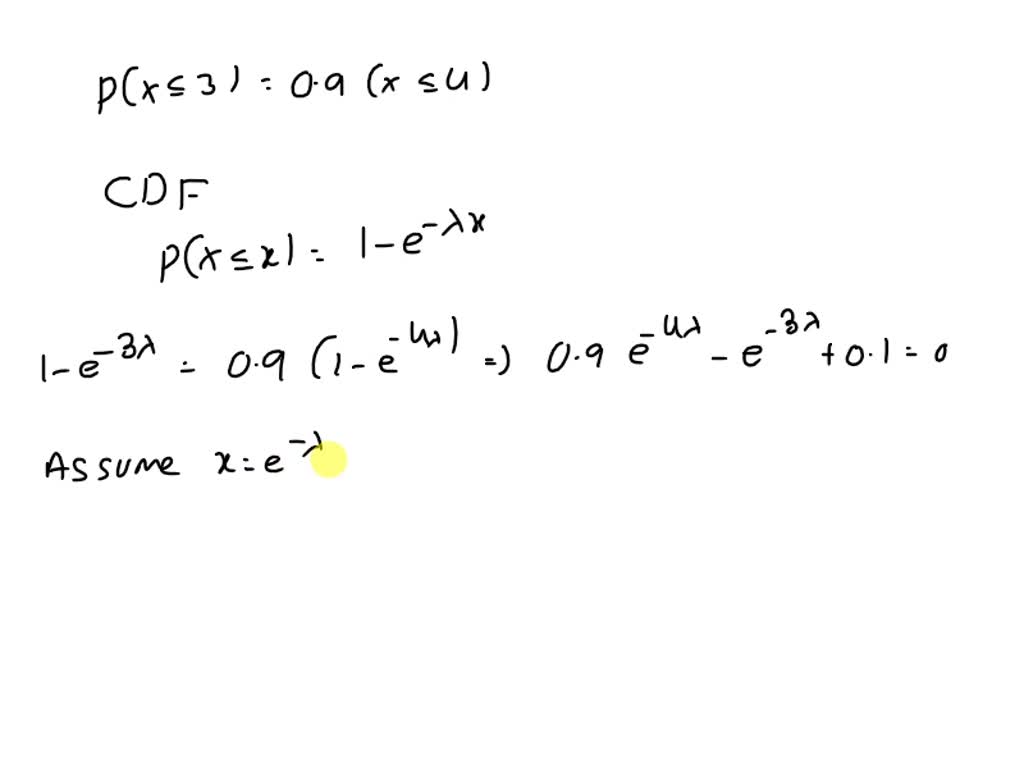 P(x ≤ 3) = 0.9 (x ≤ 4)
CDF
P(X ≤ x) = 1 - e^{-λx}
1 - e^{-3λ} = 0.9 (1 - e^{-4λ}) => 0.9 e^{-4λ} - e^{-3λ} + 0.1 = 0
Assume x = e^{-λ}